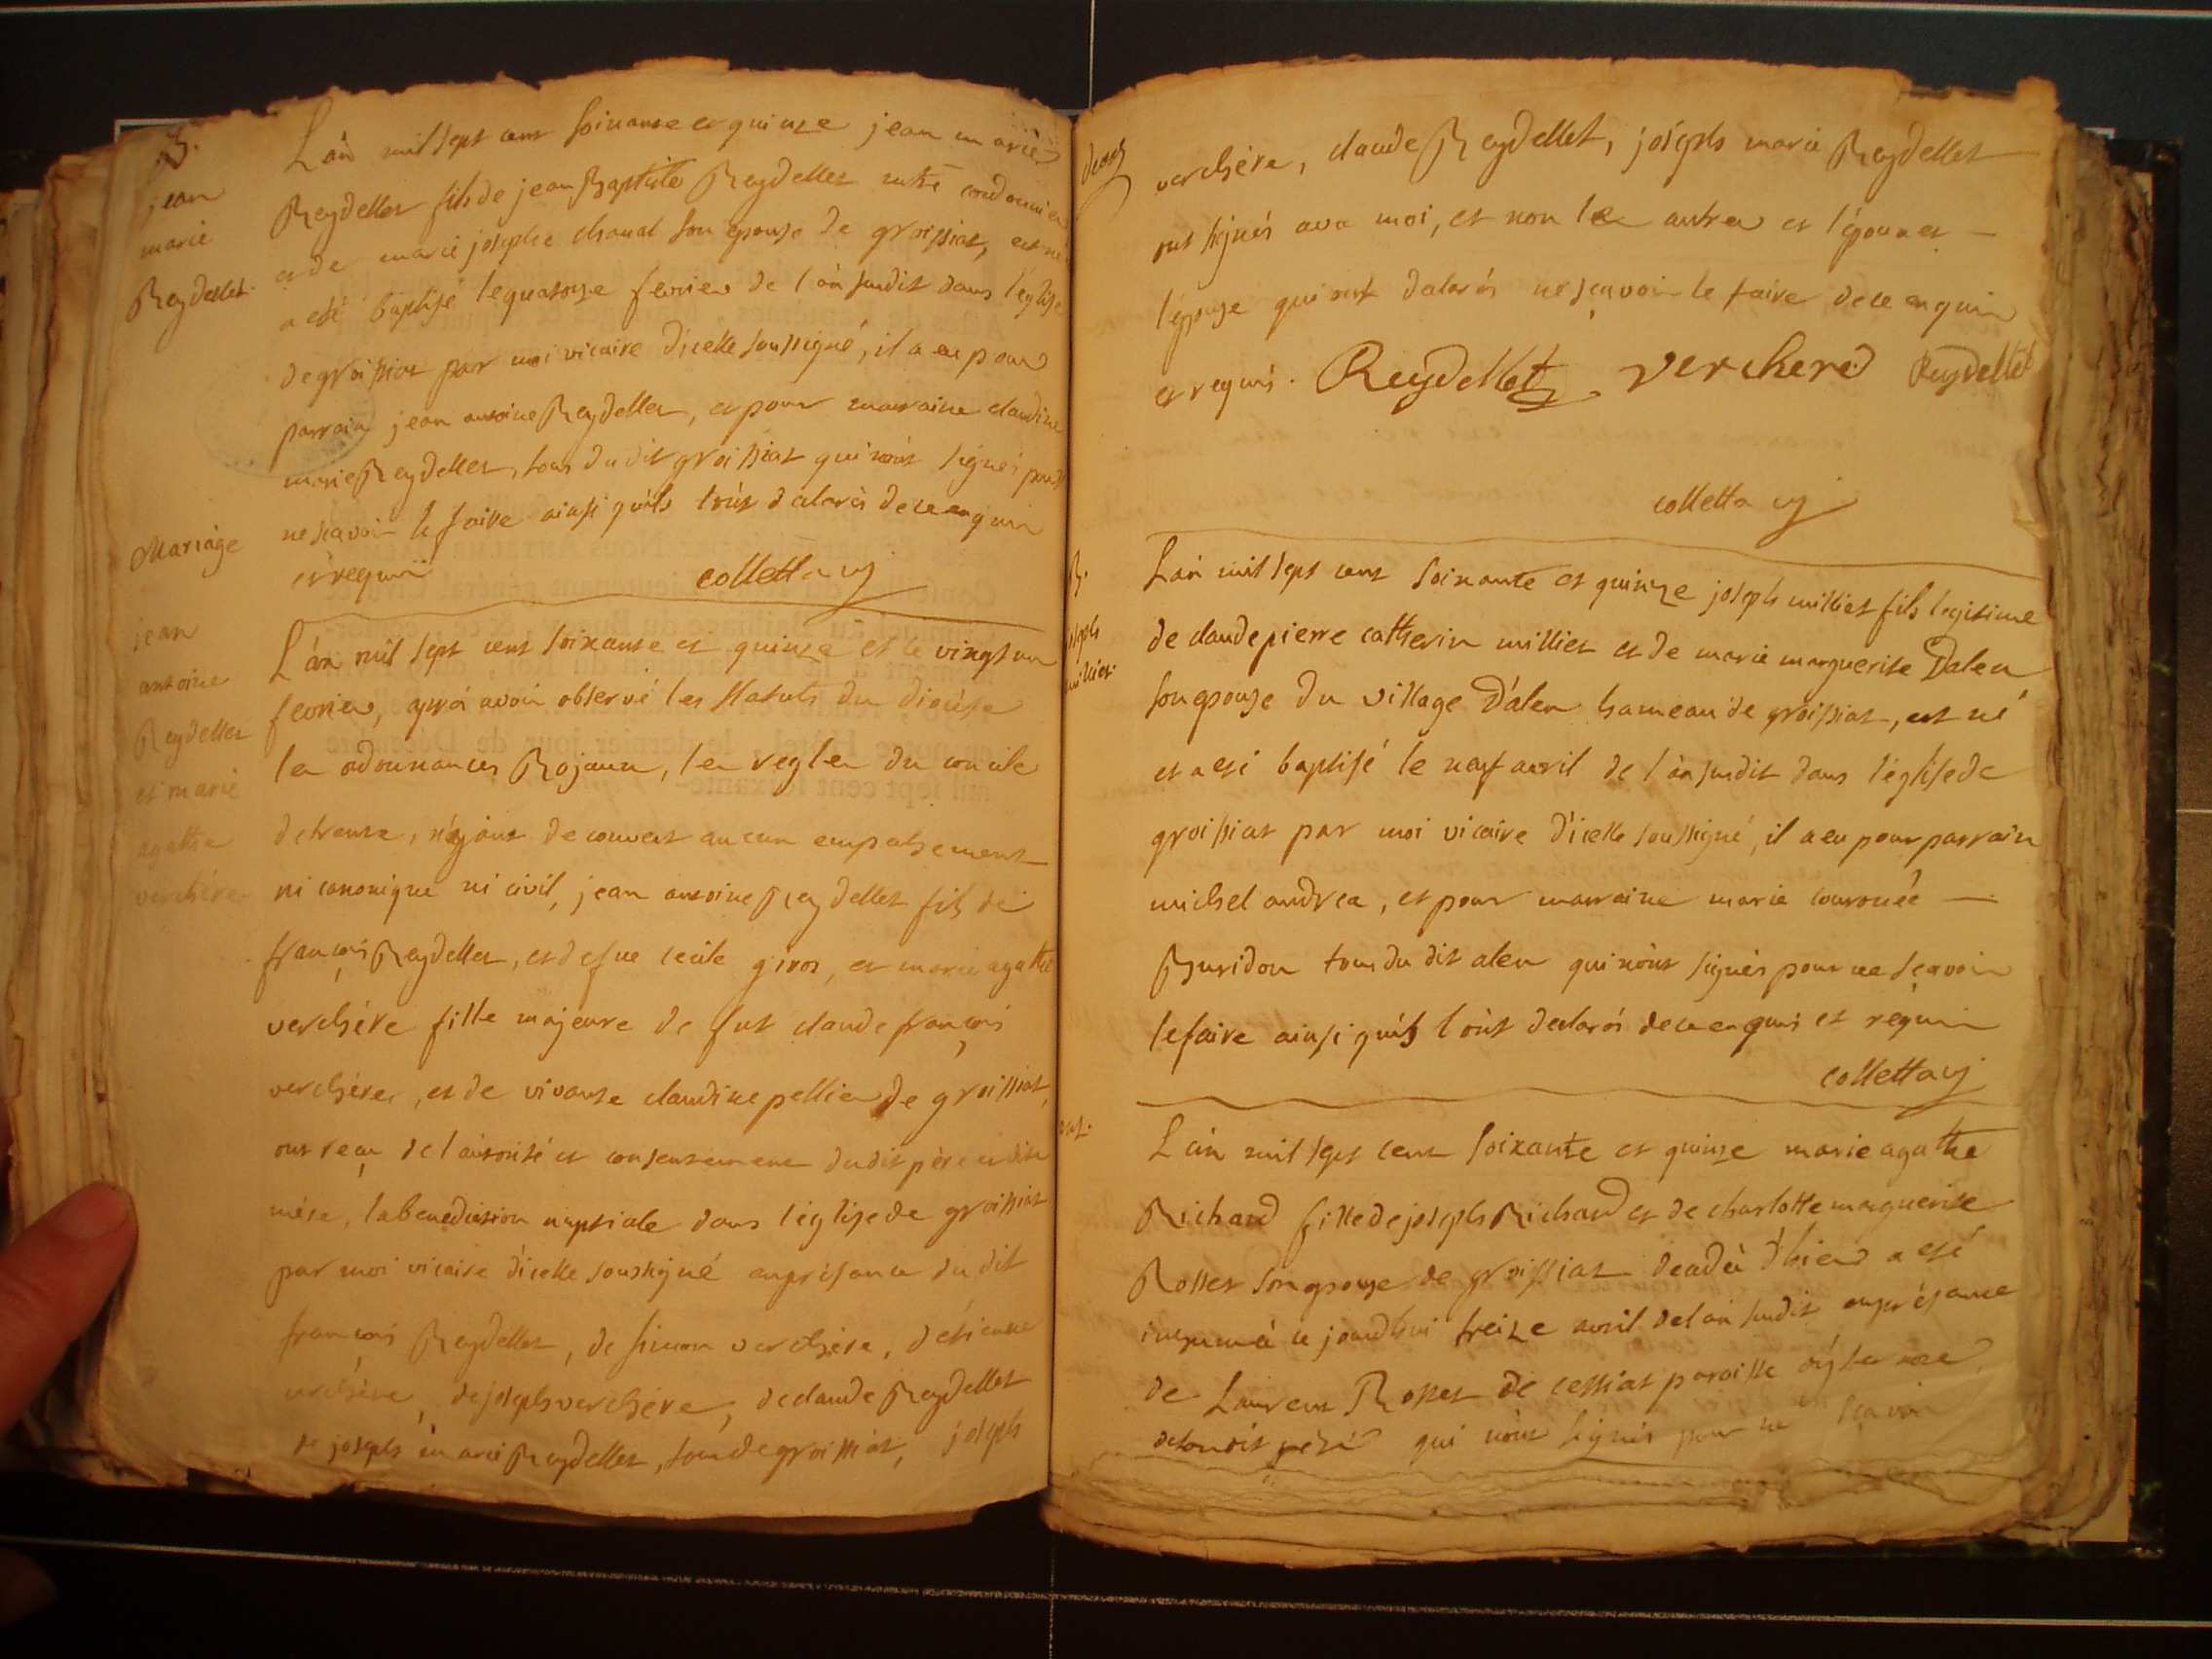 B.
jean
marie
Reydellet.
L'an mil sept cent soixante et quinze jean marie
Reydellet fils de jean Baptiste Reydellet mtre cordonnier
et de marie josephe chanal son epouse de groissiat, est né
a eté baptisé le quatorze fevrier de l'an susdit dans l'eglise
de groissiat par moi vicaire d'icelle soussigné, il a eu pour
parrain jean antoine Reydellet, et pour marraine claudine
marie Reydellet, tous dudit groissiat qui n'ont signés pour
ne scavoir le faire ainsi qu'ils l'ont dalarés de ce enquis
et requis
colletta vj
Mariage
jean
antoine
Reydellet
et marie
agathe
verchère
L'an mil sept cent soixante et quinze et le vingt un
fevrier, après avoir observé les statuts du diocèse
les ordonnances Rojaux, les regles du concile
de trente, n'ayant decouvert aucun empechement
ni canonique ni civil, jean antoine Reydellet fils de
françois Reydellet, et de fue cecile girod, et marie agathe
verchère fille majeure de fut claude françois
verchère, et de vivante claudine pellier de groissiat,
ont reçu de l'autorité et consentement dudit père et dite
mère, la benediction nuptiale dans l'eglise de groissiat
par moi vicaire d'icelle soussigné en présance du dit
françois Reydellet, de simon verchère, d'etienne
verchère, de joseph verchère, de claude Reydellet
de joseph marie Reydellet, tous de groissiat, joseph
verchère, claude Reydellet, joseph marie Reydellet
ont signés avec moi, et non les autres et l'epoux et
l'épouse qui ont dalarés ne sçavoir le faire de ce enquis
et requis. Reydellet verchere Reydellet
colletta vj
B.
joseph
millet.
L'an mil sept cent soixante et quinze joseph milliet fils legitime
de claude pierre catherin milliet et de marie marguerite Dalen
son epouse du village D'alen hameau de groissiat, est né
et a eté baptisé le neuf avril de l'an susdit dans l'église de
groissiat par moi vicaire d'icelle soussigné, il a eu pour parrain
michel andrea, et pour marraine marie couronée
Buridon tous du dit alen qui n'ont signés pour ne sçavoir
le faire ainsi qu'ils l'ont declarés de ce enquis et requis
colletta vj
L'an mil sept cent soixante et quinze marie agathe
Richard fille de joseph Richard et de charlotte marguerite
Rosset son epouse de groissiat decedée d'hier a eté
inhumée ce jourd'hui treize avril de l'an susdit en présance
de Laurent Rosset de cessiat paroisse
de son dit père qui n'ont signés pour ne sçavoir